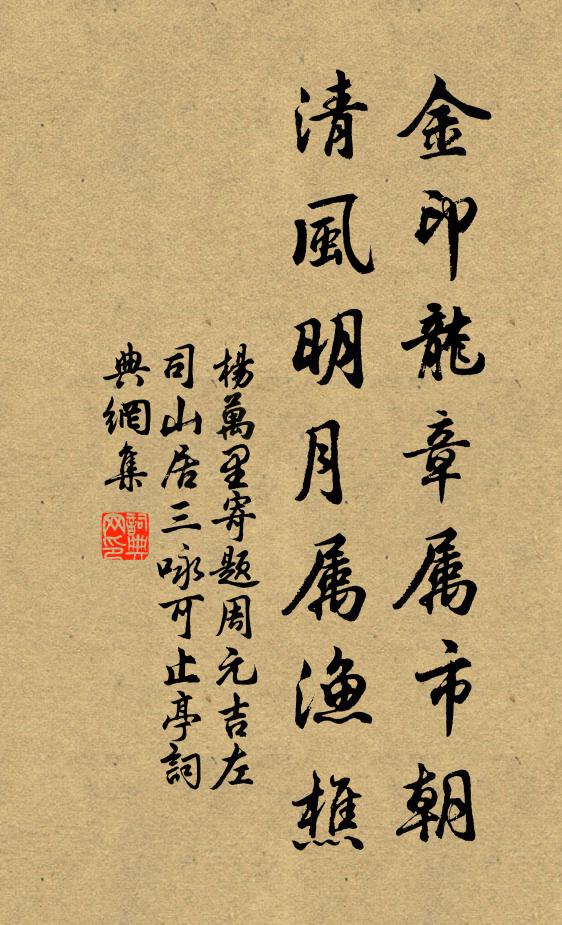 金印龍章属市朝
清風明月属漁樵
楊萬里寄题周元吉左
司山居三咏可止亭詞
典網集
詞典
网印